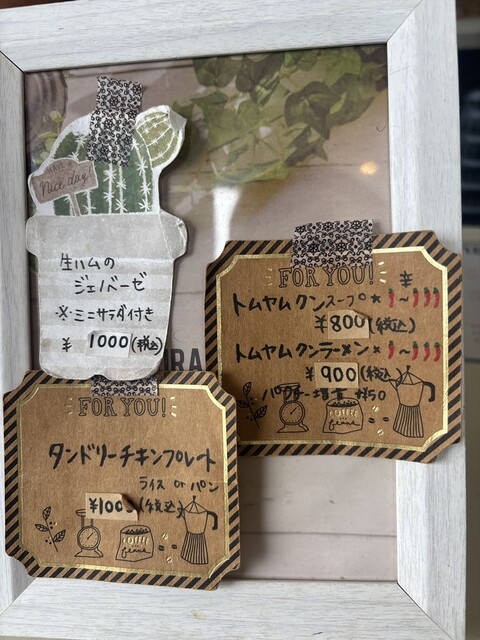 HAVE A
Nice day!
生ハムの
ジェノベーゼ
※ミニサラダ付き
¥ 1000(税込)
FOR YOU!
トムヤムクンスープ
¥800(税込)
トムヤムクンラーメン
¥900(税込
パクチー増量 +¥50
COFFEE
RA
FOR YOU!
タンドリーチキンプレート
ライス or パン
¥100 (税込)
COFFEE
Beans